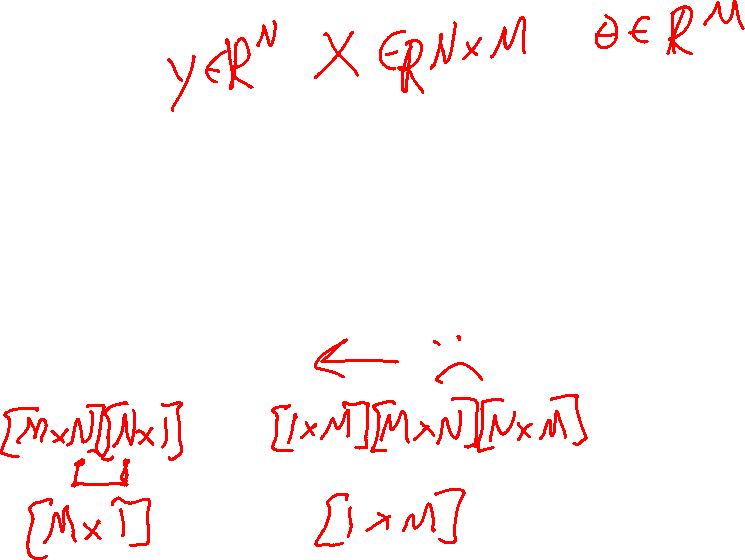 y ∈ ℝ^N X ∈ ℝ^N×M θ ∈ ℝ^M
[M×N][N×1] [1×M][M×N][N×M]
[M×1] [1×M]